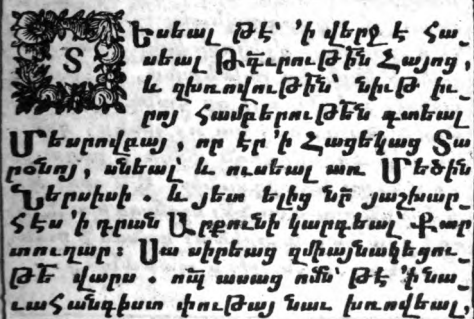 Տ Եսեալ թէ՝ ՚ի վերջ է հա
սեալ Թգ՟ւրութի՟ն Հայոց,
և զխռովութի՟ն՝ նիւթ իւ
րոյ համբերութե՟ն գտեալ
Մեսրովբայ, որ էր ՚ի Հացեկաց Տա
րօնոյ, սնեալ՝ և ուսեալ առ Մեծին
Ներսիսի. և յետ ելից նր՟ յաշխար
հէս ՚ի դրան Արքունի կարգեալ՝ Քար
տուղար։ Սա սիրեաց զմիայնակեցու
թե՟ վարս. ո՟պ ասաց ոմն՝ թէ ՚ի նա
ւահանգիստ փութայ նաւ խռովեալ.